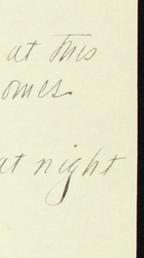 at this
omes
at night